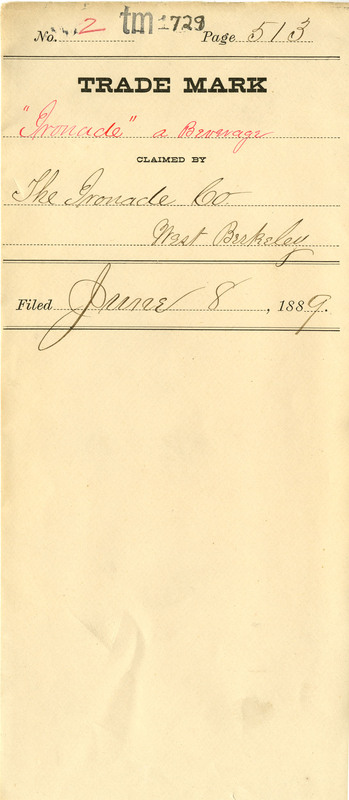 No. 2 tm 1729 Page 513
TRADE MARK
"Ironade" a Beverage
CLAIMED BY
The Ironade Co.
West Berkeley
Filed June 8, 1889.